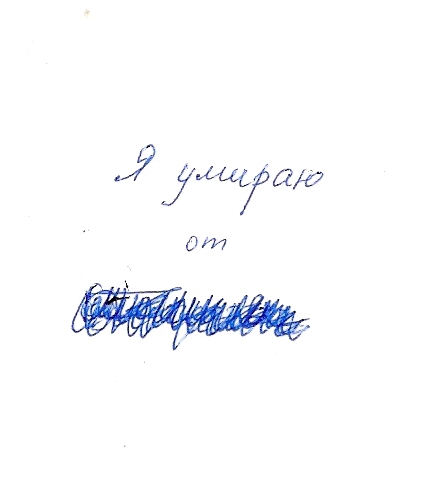 Я умираю
от